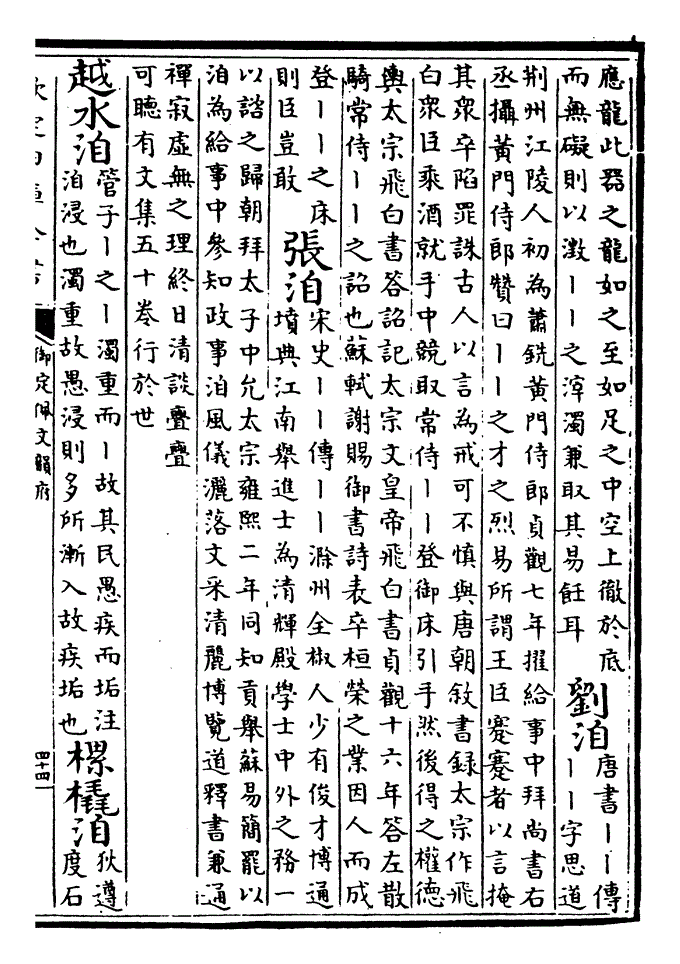 應龍此器之龍如之至如足之中空上徹於底
而無礙則以澂丨丨之滓濁兼取其易飪耳
劉洎
唐書丨丨傳
丨丨字思道
荆州江陵人初為蕭銑黃門侍郎貞觀七年擢給事中拜尚書右
丞攝黃門侍郎贊曰丨丨之才之烈易所謂王臣蹇蹇者以言掩
其眾卒陷罪誅古人以言為戒可不慎與唐朝敘書録太宗作飛
白眾臣乘酒就手中競取常侍丨丨登御床引手然後得之權德
輿太宗飛白書答詔記太宗文皇帝飛白書貞觀十六年答左散
騎常侍丨丨之詔也蘇軾謝賜御書詩表卒桓榮之業因人而成
登丨丨之床
則臣豈敢
張洎
宋史丨丨傳丨丨滁州全椒人少有俊才博通
墳典江南舉進士為清輝殿學士中外之務一
以諮之歸朝拜太子中允太宗雍熙二年同知貢舉蘇易簡罷以
洎為給事中參知政事洎風儀灑落文采清麗博覽道釋書兼通
禪寂虛無之理終日清談亹亹
可聽有文集五十卷行於世
越水洎
管子丨之丨濁重而丨故其民愚疾而垢注
洎浸也濁重故愚浸則多所漸入故疾垢也
樏橇洎
狄遵
度石
欽定四庫全書
御定佩文韻府